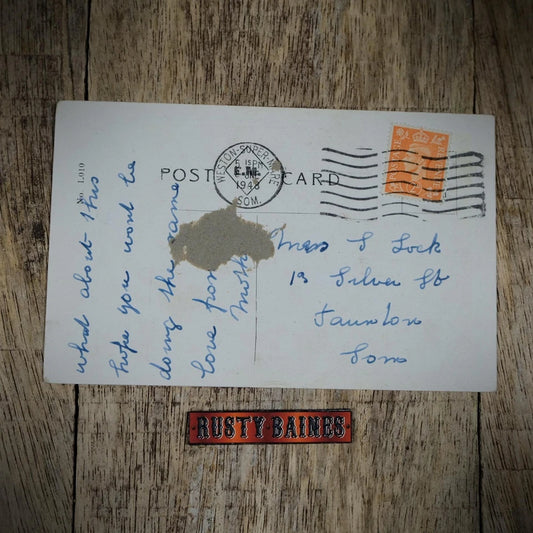 No. L010
POST CARD
WESTON-SUPER-MARE
5 15 PM
JNE
1948
SOM.
what about this
hope you wont be
doing the same
love from
Moth
Mrs S Lock
19 Silver St
Taunton
Som
RUSTY·BAINES